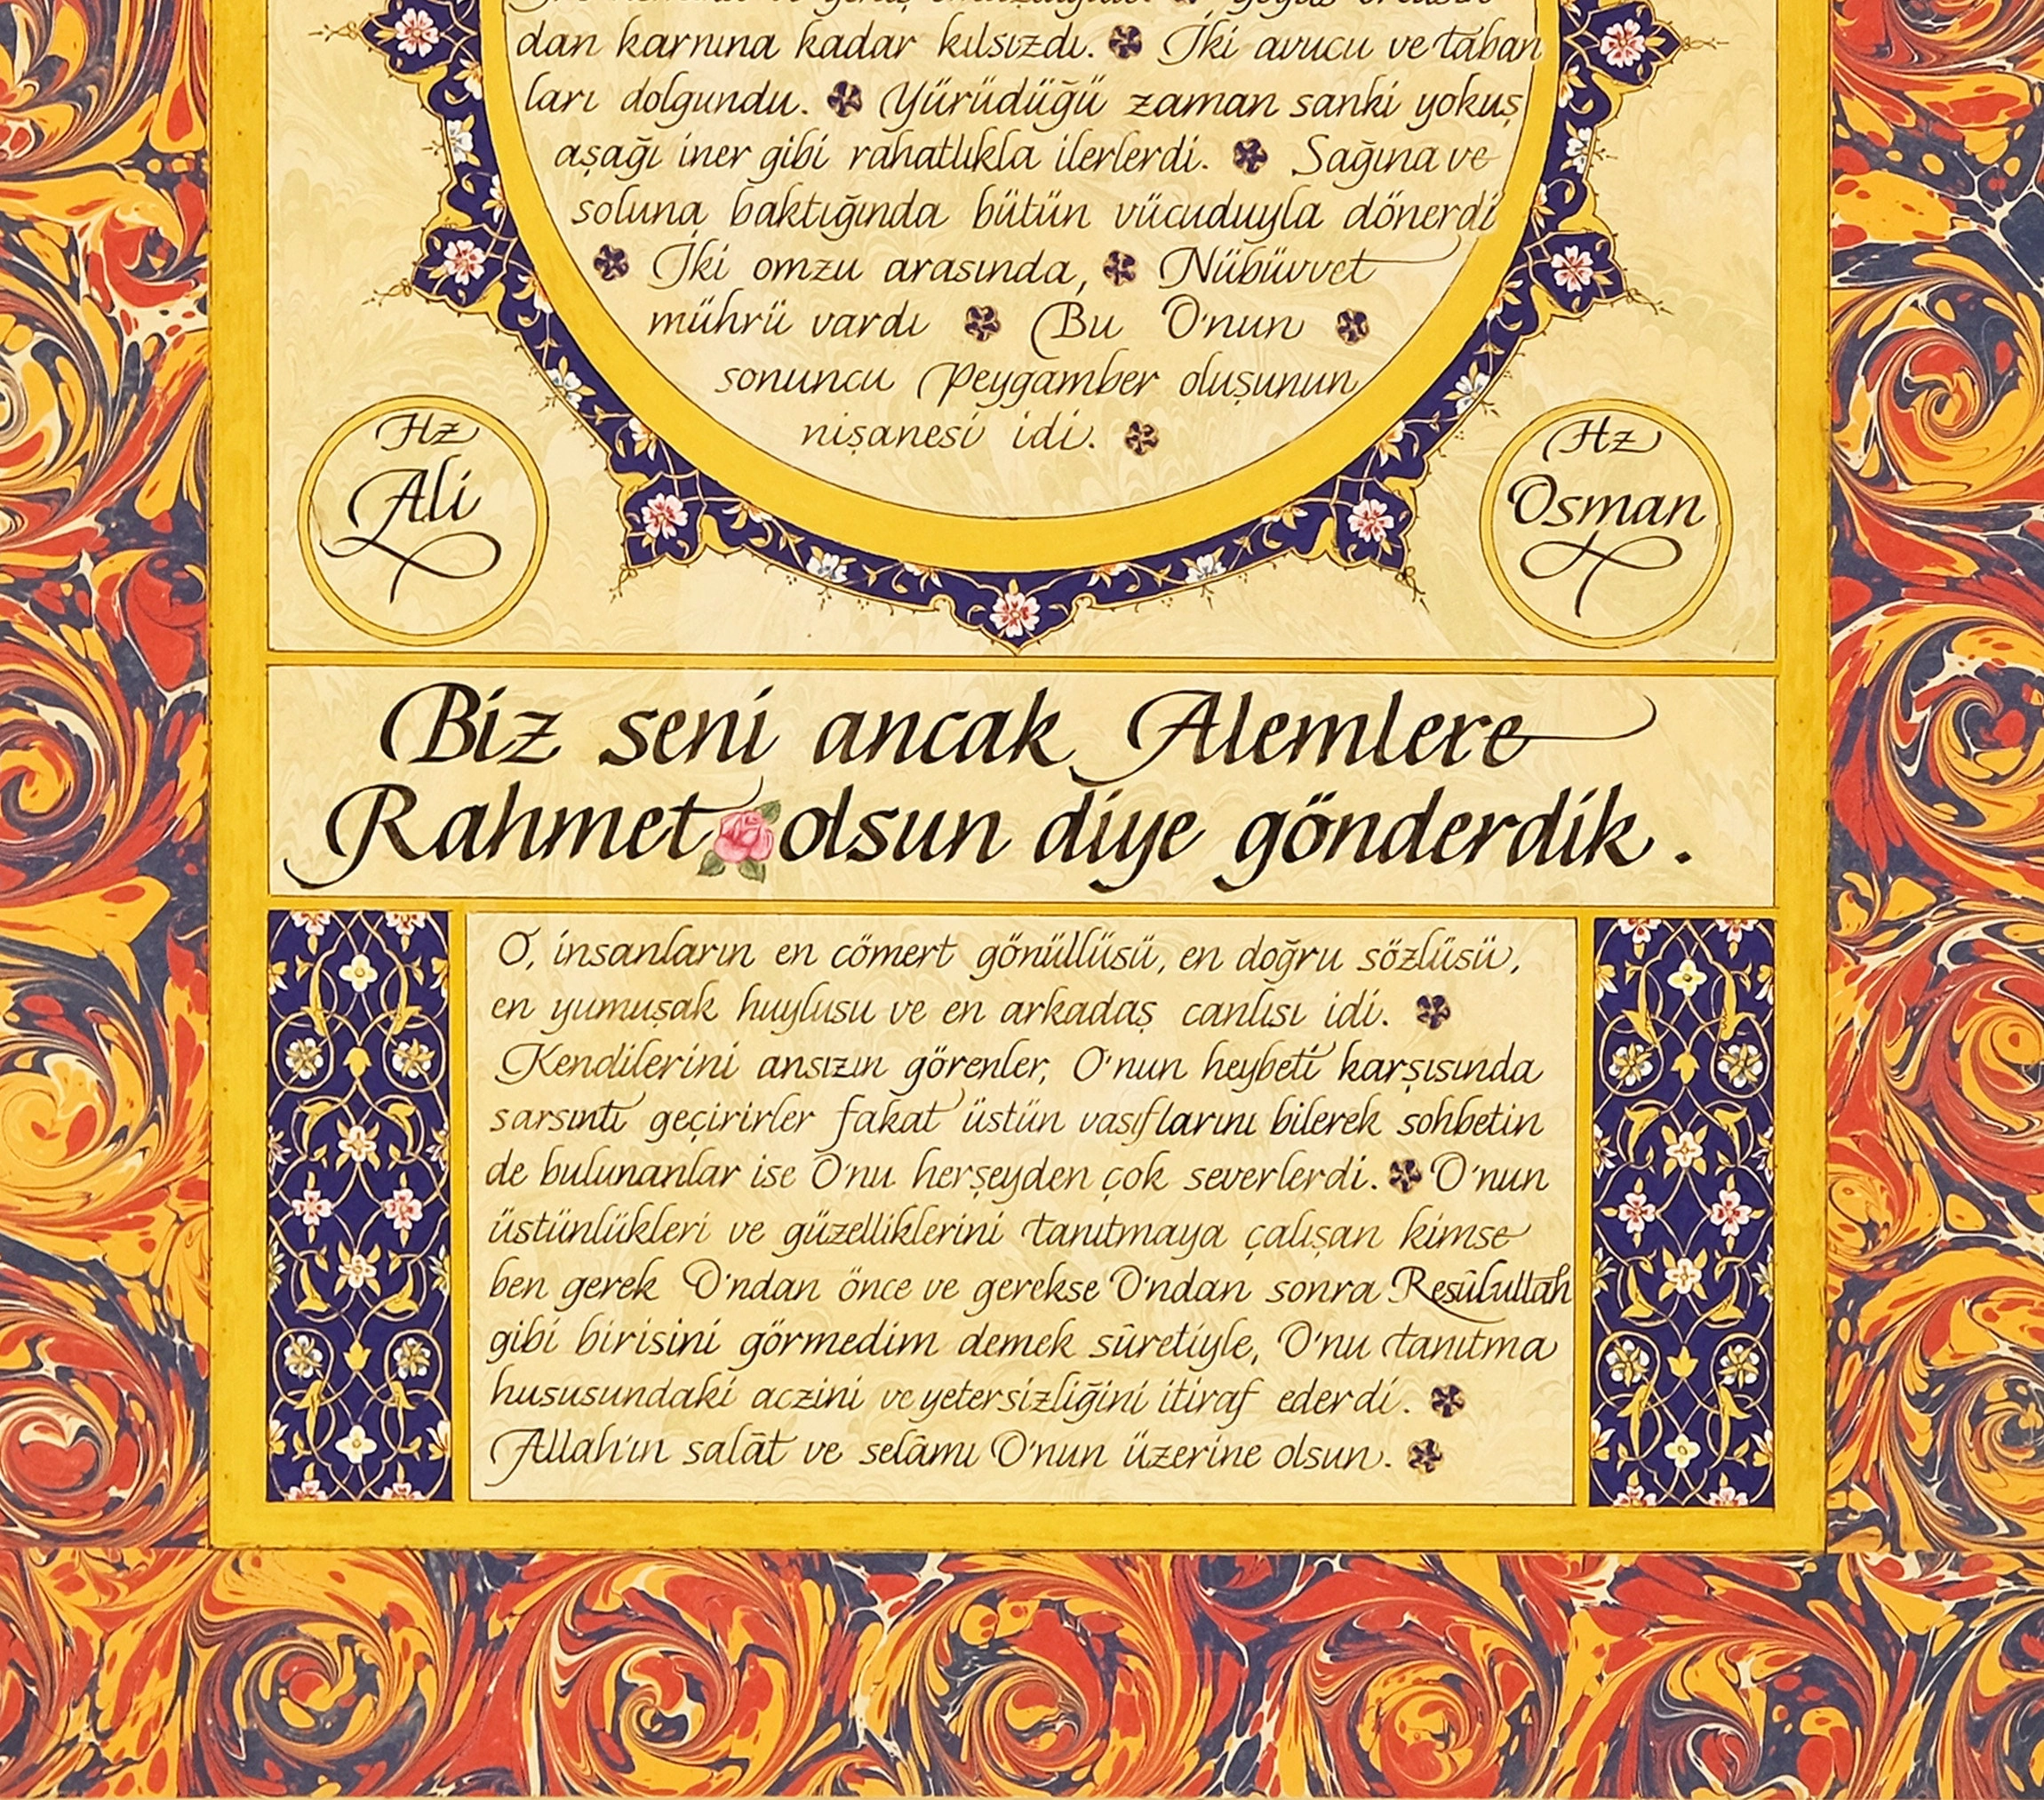 dan karnına kadar kılsızdı. İki avucu ve taban
ları dolgundu. Yürüdüğü zaman sanki yokuş
aşağı iner gibi rahatlıkla ilerlerdi. Sağına ve
soluna baktığında bütün vücuduyla dönerdi
İki omzu arasında, Nübüvvet
mührü vardı Bu O'nun
sonuncu Peygamber oluşunun
nişanesi idi.
Hz
Ali
Hz
Osman
Biz seni ancak Alemlere
Rahmet olsun diye gönderdik.
O, insanların en cömert gönüllüsü, en doğru sözlüsü,
en yumuşak huylusu ve en arkadaş canlısı idi.
Kendilerini ansızın görenler, O'nun heybeti karşısında
sarsıntı geçirirler fakat üstün vasıflarını bilerek sohbetin
de bulunanlar ise O'nu herşeyden çok severlerdi. O'nun
üstünlükleri ve güzelliklerini tanıtmaya çalışan kimse
ben gerek O'ndan önce ve gerekse O'ndan sonra Resûlullah
gibi birisini görmedim demek sûretiyle, O'nu tanıtma
hususundaki aczini ve yetersizliğini itiraf ederdi.
Allah'ın salât ve selâmı O'nun üzerine olsun.